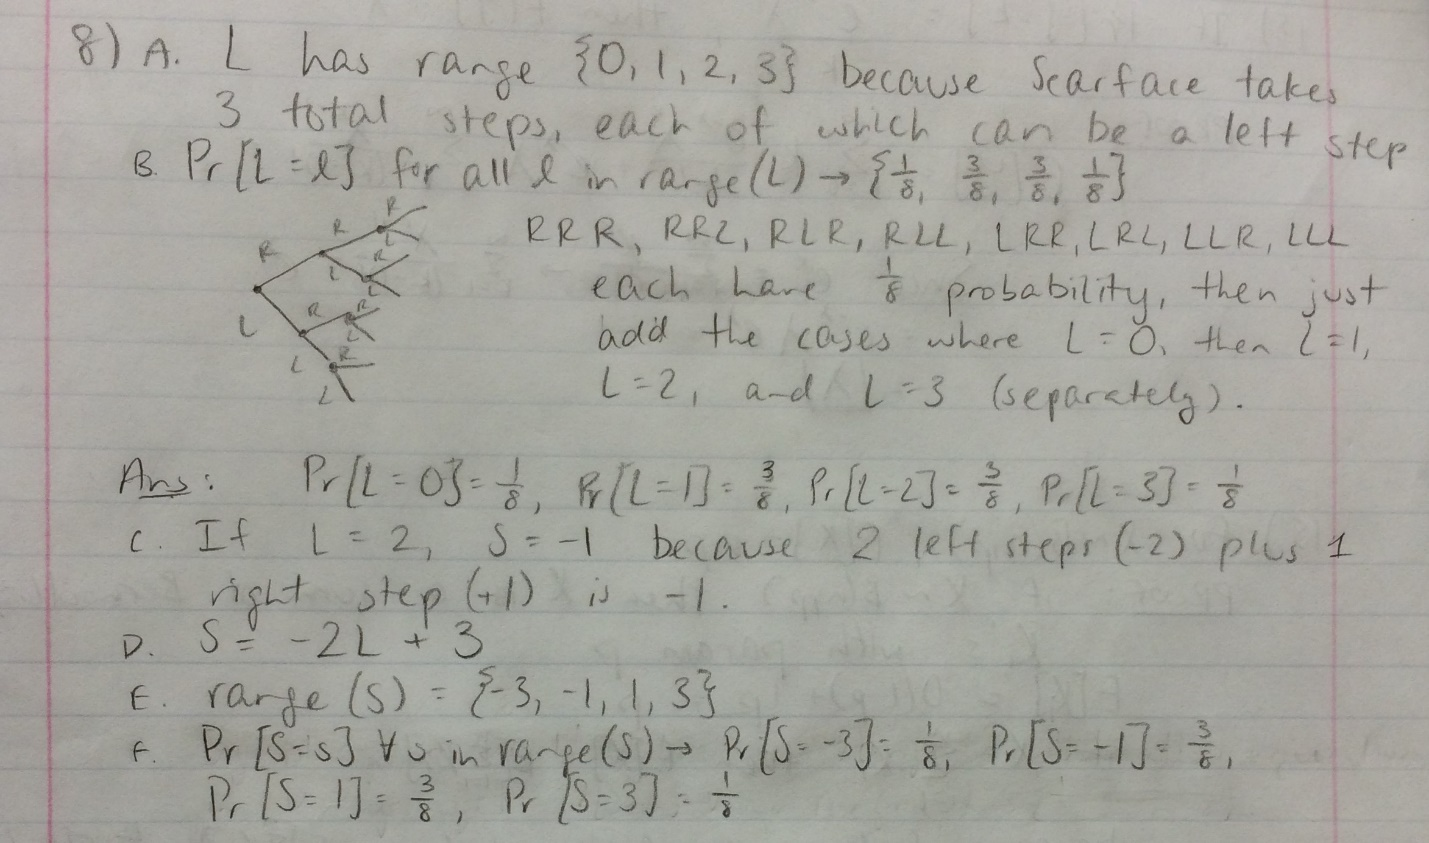 8) A. L has range {0, 1, 2, 3} because Scarface takes
3 total steps, each of which can be a left step
B. Pr[L = l] for all l in range(L) → {1/8, 3/8, 3/8, 1/8}
RRR, RRL, RLR, RLL, LRR, LRL, LLR, LLL
each have 1/8 probability, then just
add the cases where L = 0, then L = 1,
L = 2, and L = 3 (separately).
R R R L
L R L
L R R L
L R L
Ans: Pr[L = 0] = 1/8, Pr[L = 1] = 3/8, Pr[L = 2] = 3/8, Pr[L = 3] = 1/8
C. If L = 2, S = -1 because 2 left steps (-2) plus 1
right step (+1) is -1.
D. S = -2L + 3
E. range(S) = {-3, -1, 1, 3}
F. Pr[S = s] ∀ s in range(S) → Pr[S = -3] = 1/8, Pr[S = -1] = 3/8,
Pr[S = 1] = 3/8, Pr[S = 3] = 1/8